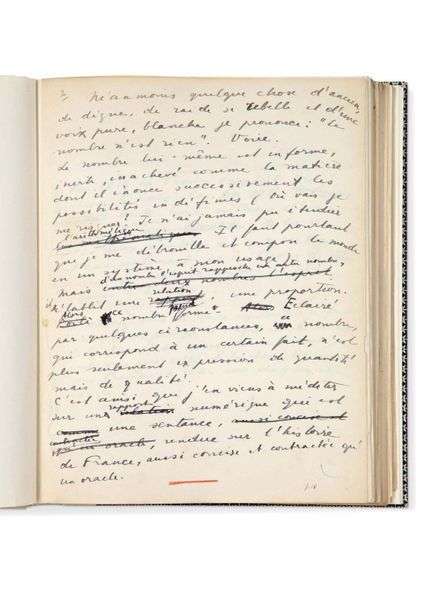 Néanmoins quelque chose d'ancien,
de digne, de raide se rebelle et d'une
voix pure, blanche je prononce : "Le
nombre n'est rien". Voire.
Le nombre lui-même est informe,
inerte, inachevé comme la matière
dont il énonce successivement les
possibilités indéfinies (Où vais je
me risquer! Je n'ai jamais pu étudier
l'arithmétique. Il faut pourtant
que je me débrouille et compose le monde
en un système à mon usage)
mais du nombre d'esprit rapproché un autre nombre,
entre deux nombres l'esprit
établit une relation, une proportion.
Alors ce nombre formé. Éclairé
par quelques circonstances, ce nombre,
qui correspond à un certain fait, n'est
plus seulement expression de quantité
mais de qualité!
C'est ainsi que j'en viens à méditer
sur un rapport numérique qui est
une sentence, aussi concise et
contractée qu'un oracle, rendue sur l'histoire
de France, aussi concise et contractée qu'
un oracle.